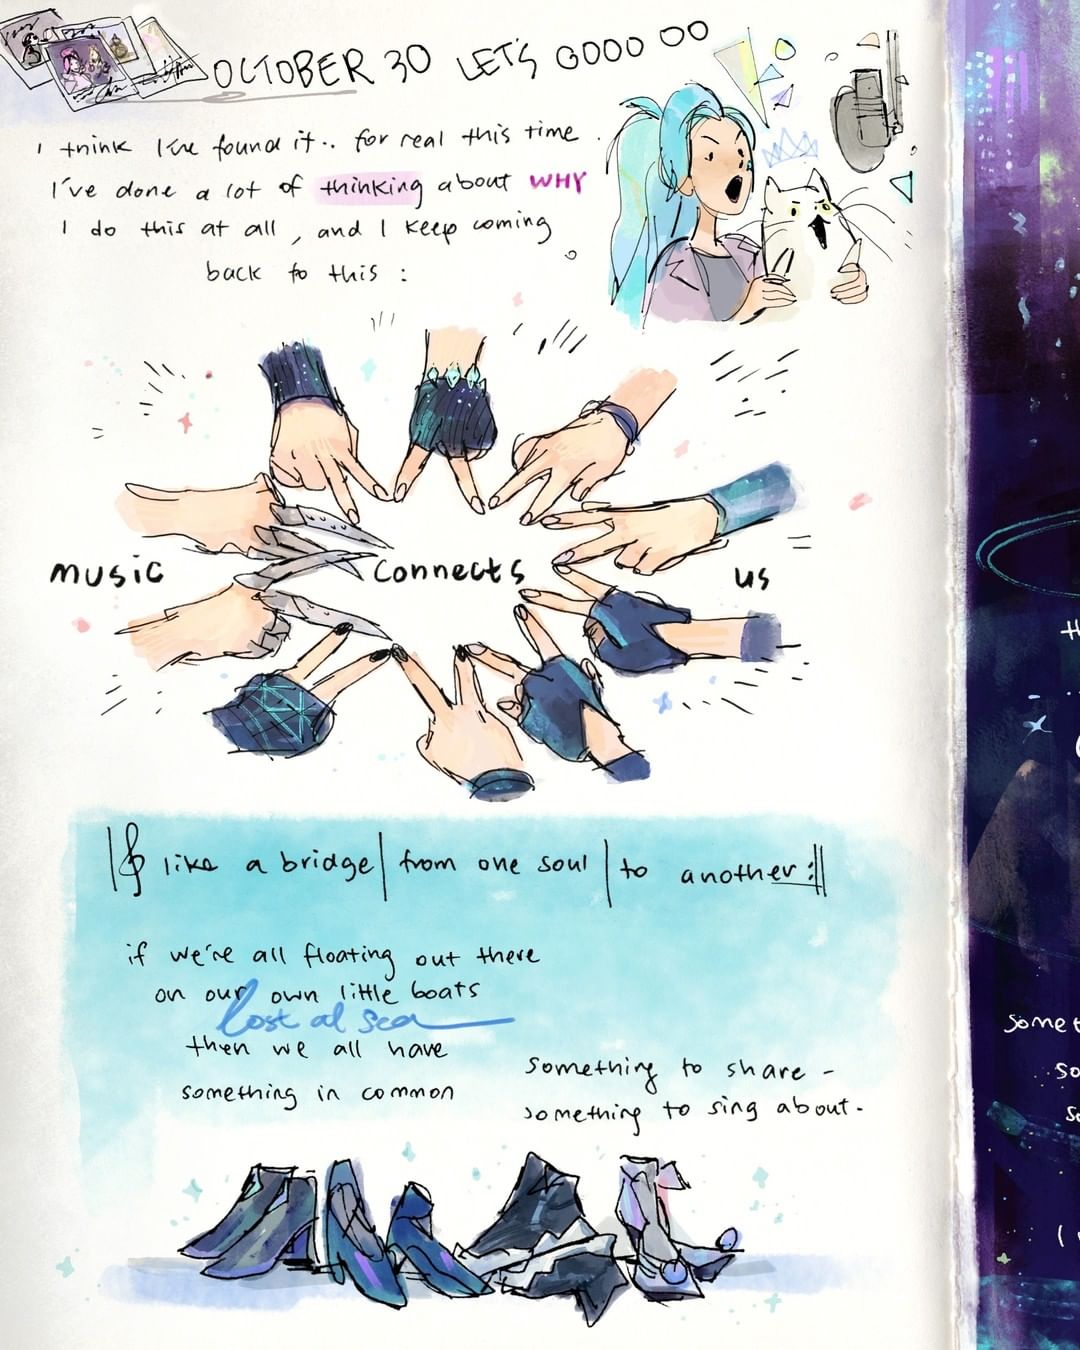 OCTOBER 30 LET'S GOOO OO
I think I've found it.. for real this time.
I've done a lot of thinking about WHY
I do this at all, and I keep coming
back to this:
music connects us
like a bridge from one soul to another
if we're all floating out there
on our own little boats
lost at sea
then we all have
something in common
something to share -
something to sing about.